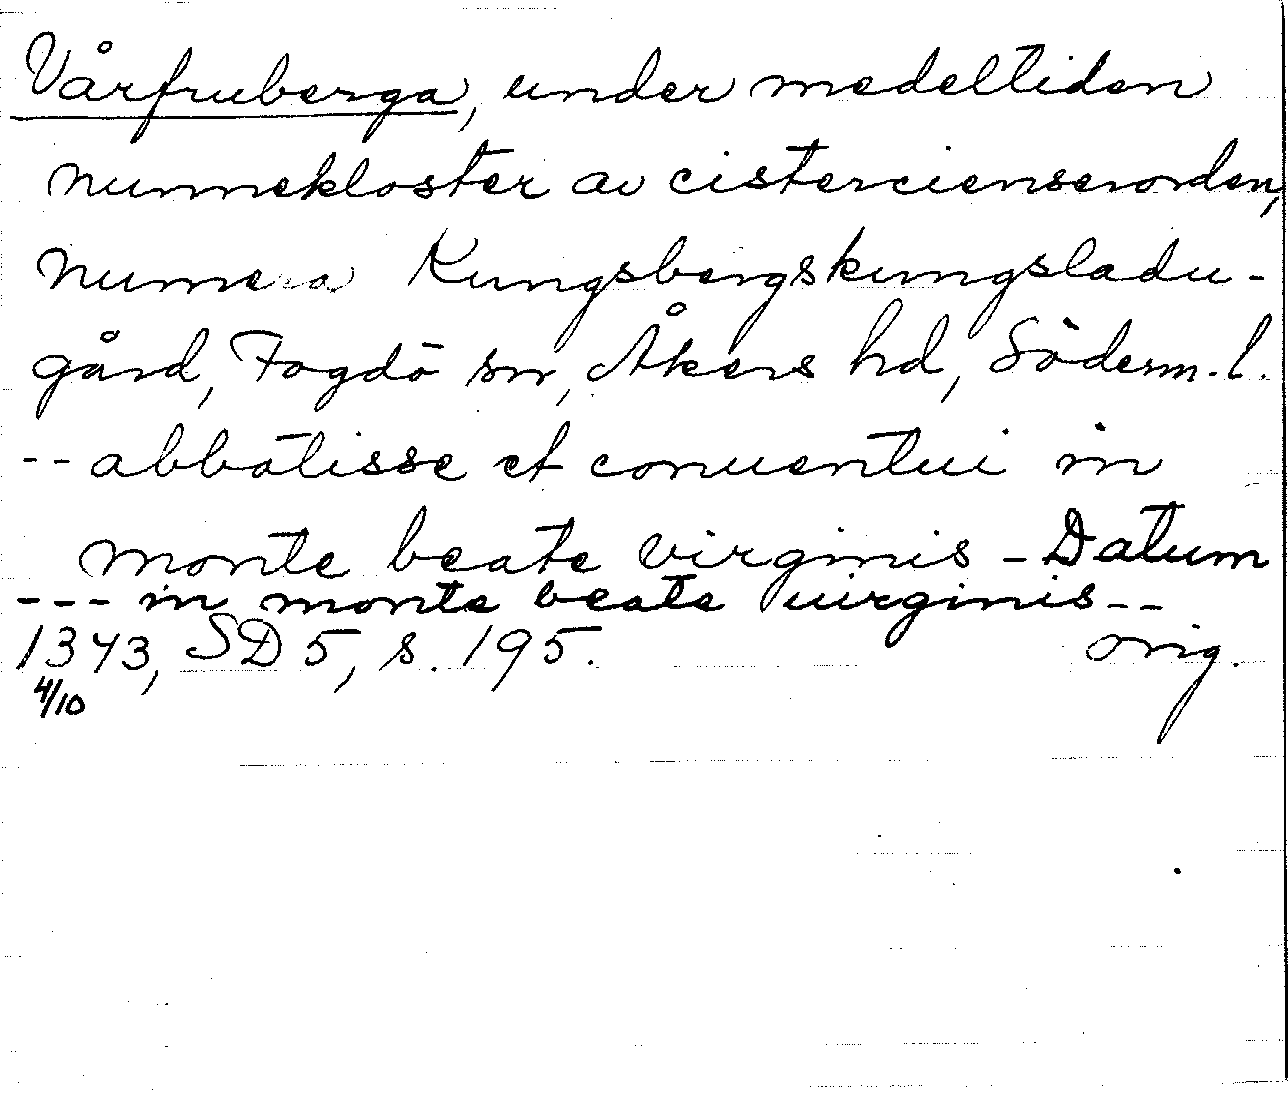 Vårfruberga, under medeltiden
nunnekloster av cistercienserorden,
numera Kungsbergskungsladu-
gård, Fogdö sn, Åkers hd, Söderm. l.
-- abbatisse et conuentui in
monte beate virginis - Datum
--- in monte beate uirginis--
1343, SD 5, s. 195. orig.
4/10